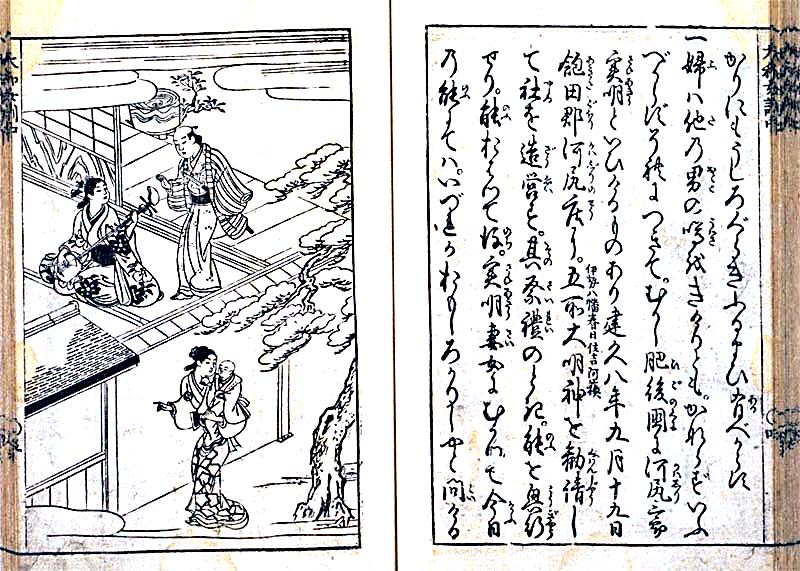 かりにもうしろぐらきふるまひ有べからず
一婦ハ他乃男の噂を とも。かならずいふ
べからず つきて。むかし肥後國に河尻
実明といひけるものあり建久八年九月十九日
飽田郡河尻庄に。五所大明神を勧請し
伊勢八幡春日住吉阿蘇
て社を造営す。其祭禮のとき。能を興行
せり。能おはりて後。実明妻女にむかひて今日
乃能にてハ。いづれかおもしろかりしやと問ける